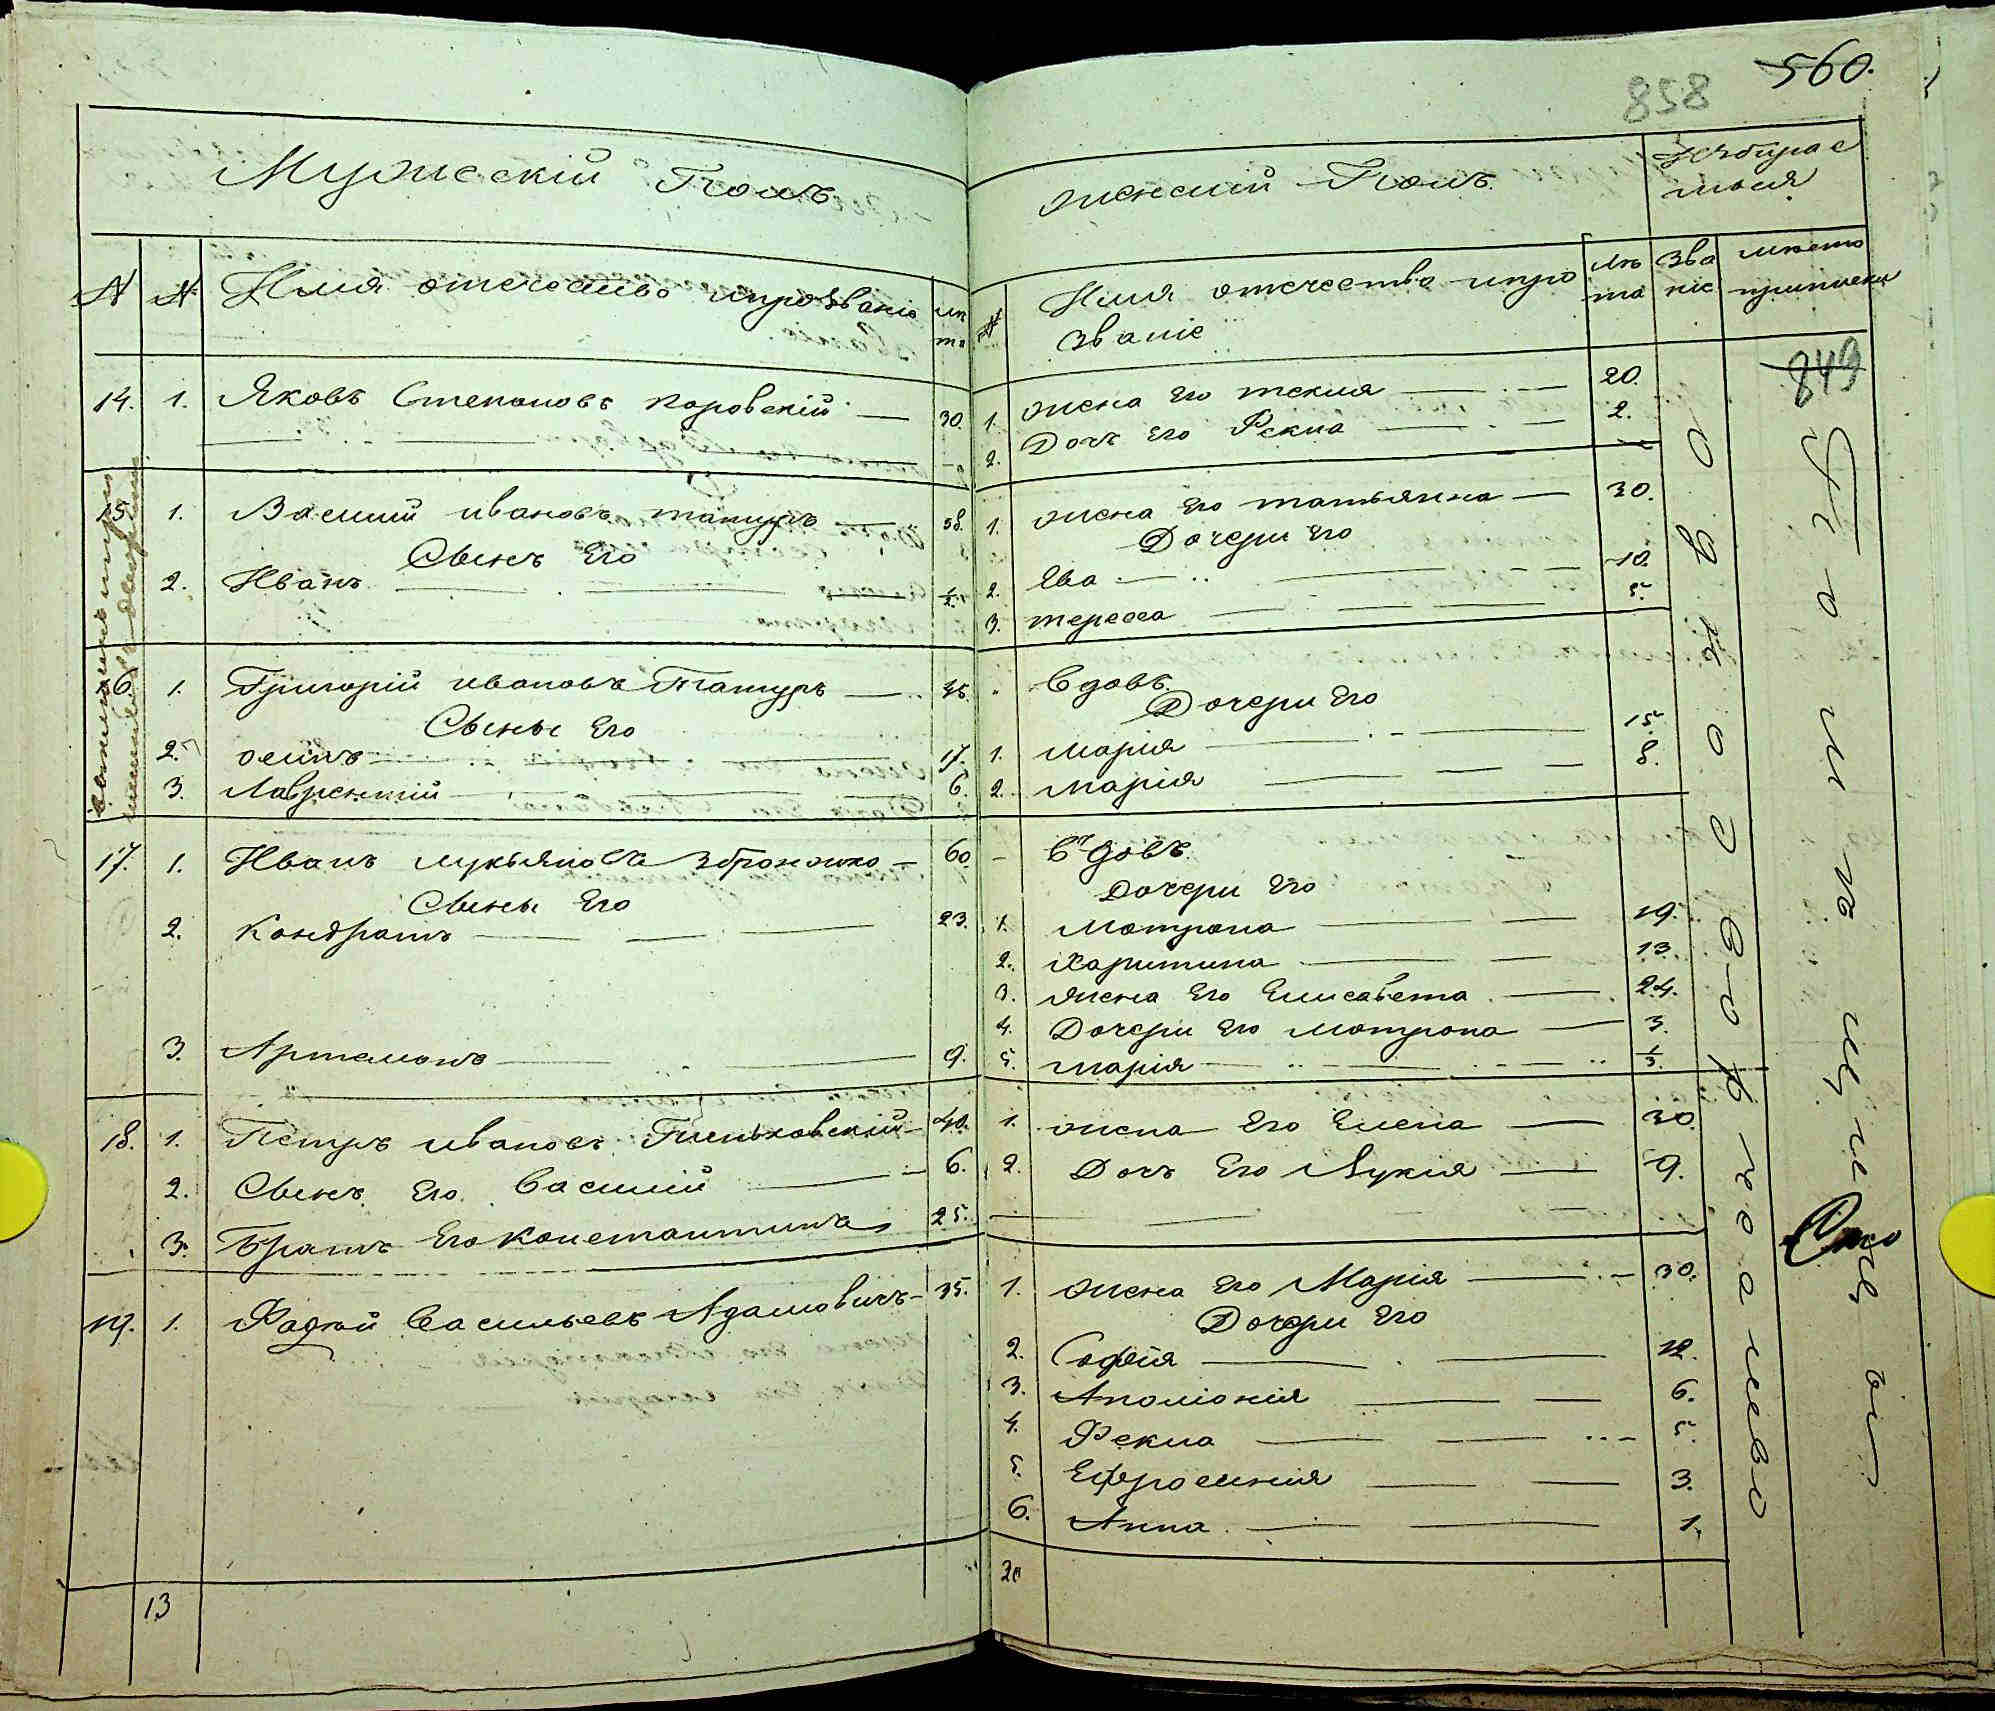 560.
858
Мужескій Полъ
N N Имя отечество и прозваніе лѣта
14. 1. Яковъ Степановъ Коровскій 30.
15. 1. Василій ивановъ татуръ 38.
Сынъ Его
2. Иванъ 1/2
16. 1. Григорій ивановъ Татуръ 35.
Сыны Его
2. осипъ 17.
3. Лаврентій 6.
17. 1. Иванъ лукьяновъ 60.
Сыны Его
2. Кондратъ 23.
3. Артемонъ 9.
18. 1. Петръ ивановъ 40.
2. Сынъ Его Василій 6.
3. Братъ Его Константинъ 25.
19. 1. Фадѣй Васильевъ Адамовичъ 35.
13
женскій Полъ
N Имя отечество и прозваніе лѣта званіе мѣсто приписки
1. жена Его текля 20.
2. Дочь Его Фекла 2.
1. жена Его татьянна 30.
Дочери Его
2. Ева 10.
3. тересса 5
вдовъ
Дочери Его
1. Марія 15
2. Марія 8.
вдовъ
Дочери Его
1. Мотрона 19.
2. Харитина 13
3. жена Его Елисавета 24.
4. Дочери Его Мотрона 3.
5. Марія 1/3.
1. жена Его Елена 30.
2. Дочь Его Лукія 9.
1. жена Его Марія 30.
Дочери Его
2. Софія 12.
3. Аполіонія 6.
4. Фекла 5.
5. Ефросинія 3.
6. Анна 1.
20
Однодворческаго
849